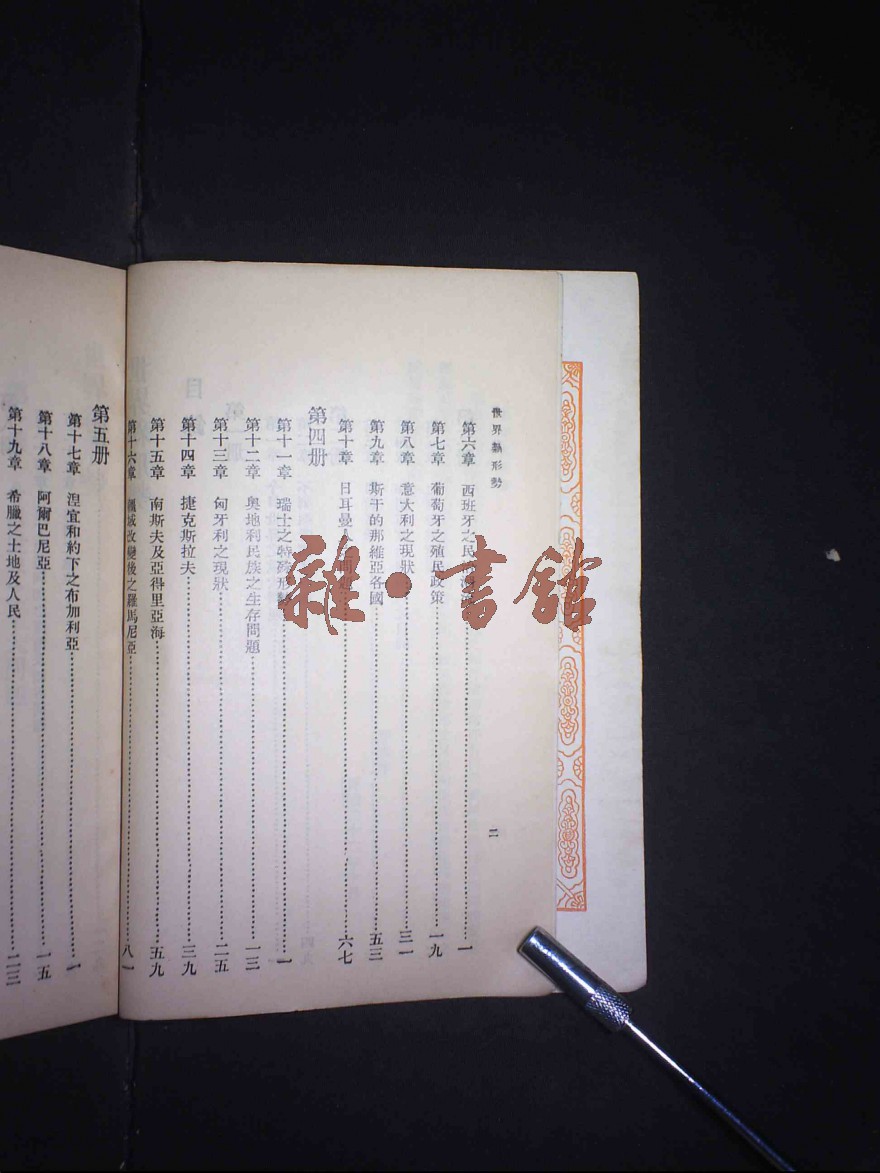 世界新形勢
二
第六章 西班牙之民
第七章 葡萄牙之殖民政策
第八章 意大利之現狀
第九章 斯干的那維亞各國
第十章 日耳曼人
第四册
第十一章 瑞士之特殊形勢
第十二章 奧地利民族之生存問題
第十三章 匈牙利之現狀
第十四章 捷克斯拉夫
第十五章 南斯夫及亞得里亞海
第十六章 疆域改變後之羅馬尼亞
一
一九
三一
五三
六七
一
一三
二五
三九
五九
八一
第五册
第十七章 涅宜和約下之布加利亞
第十八章 阿爾巴尼亞
第十九章 希臘之土地及人民
一
一五
二三
雜·書館